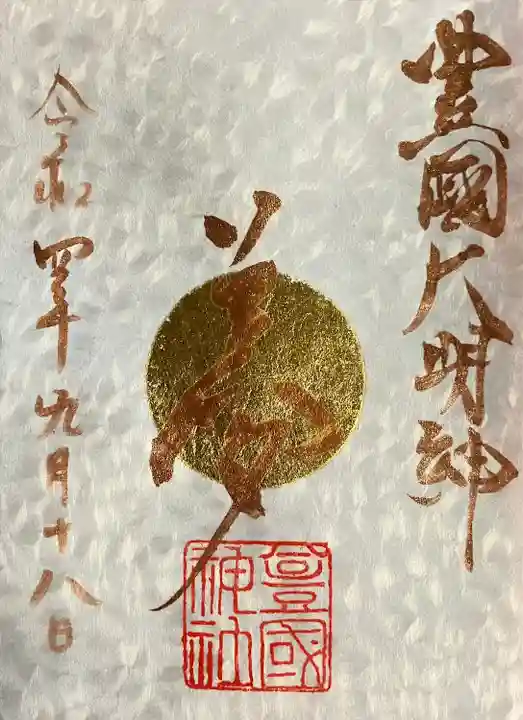 豊國大明神
夢
令和四年九月十八日
豊國
神社